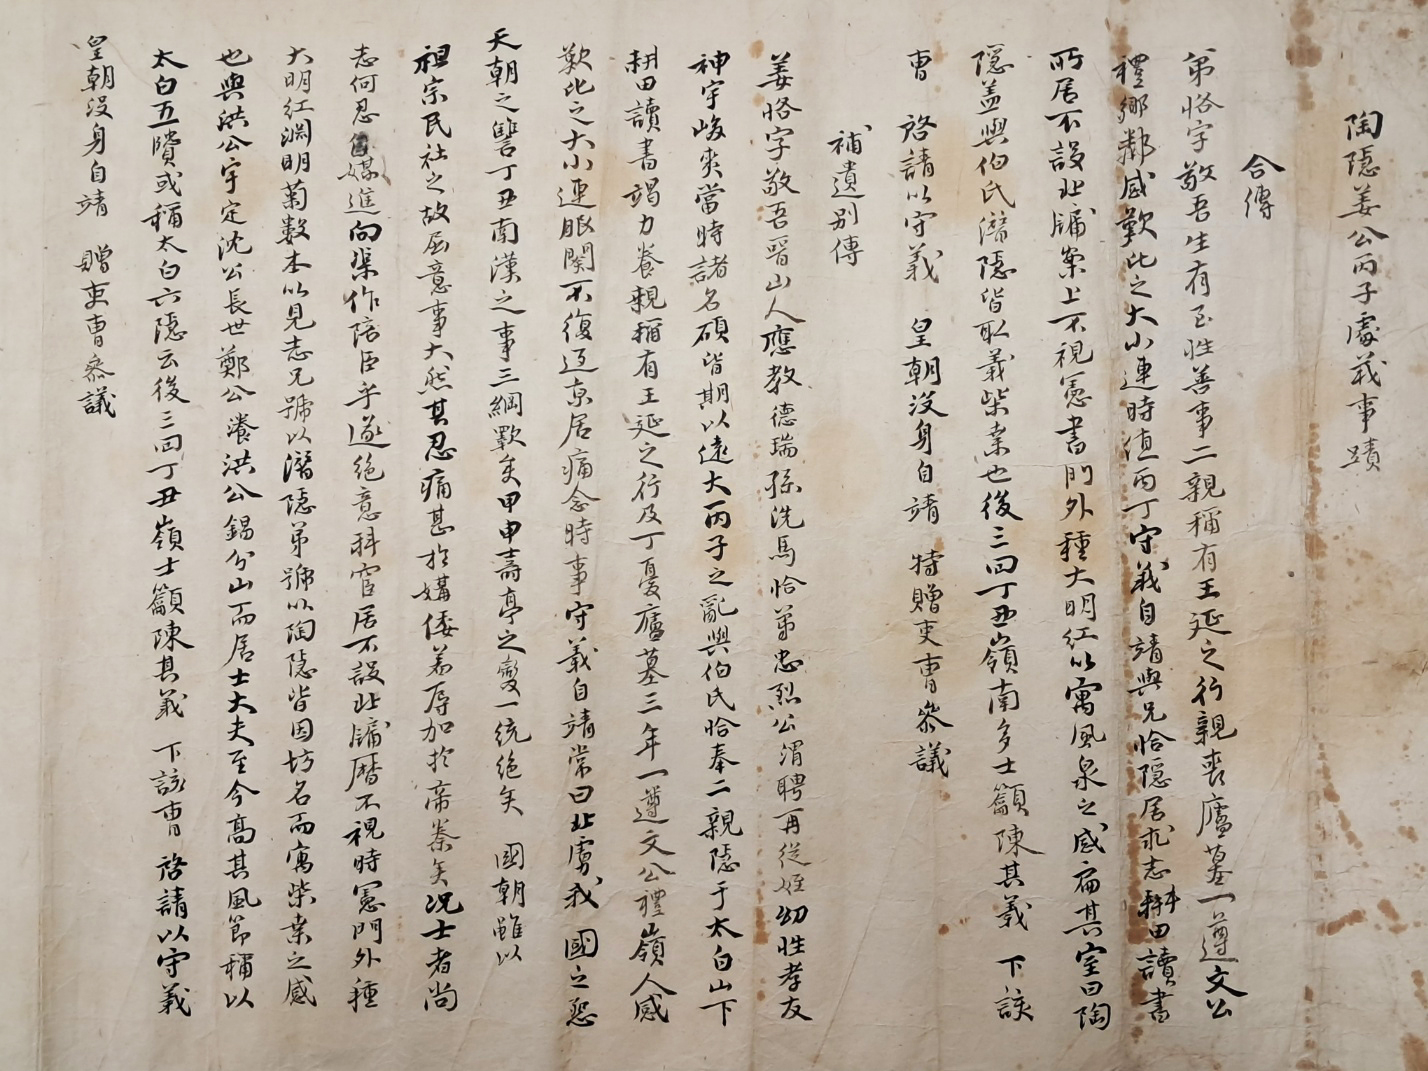 陶隱姜公丙子處義事蹟
合傳
弟恪字敬吾生有至性善事二親稱有王延之行親喪廬墓一遵文公
禮鄉鄰感歎比之大小連時值丙丁守義自靖與兄恰隱居求志耕田讀書
所居不設北牖案上不視憲書門外種大明紅以寓風泉之感扁其室曰陶
隱盖與伯氏潛隱皆取義柴桒也後三回丁丑嶺南多士籲陳其義 下該
曺 啓請以守義 皇朝沒身自靖 特贈吏曺叅議
補遺別傳
姜恪字敬吾晋山人應敎德瑞孫洗馬恰弟忠烈公渭聘再從姪幼性孝友
神宇峻爽當時諸名碩皆期以遠大丙子之亂與伯氏恰奉二親隱于太白山下
耕田讀書竭力養親稱有王延之行及丁憂廬墓三年一遵文公禮嶺人感
歎比之大小連服闋不復還京居痛念時事守義自靖常曰北虜我 國之怨
天朝之讐丁丑南漢之事三綱斁矣甲申壽亭之變一統絶矣 國朝雖以
祖宗民社之故屈意事大然其忍痛甚於媾倭羞辱加於帝秦矣况士者尚
志何忍自媒進向渠作陪臣乎遂絶意科宦居不設北牖曆不視時憲門外種
大明紅淵明菊数本以見志兄號以潛隱弟號以陶隱皆因坊名而寓柴桒之感
也與洪公宇定沈公長世鄭公瀁洪公錫分山而居士大夫至今高其風節稱以
太白五賢或稱太白六隱云後三回丁丑嶺士籲陳其義 下該曺 啓請以守義
皇朝沒身自靖 贈吏曺叅議